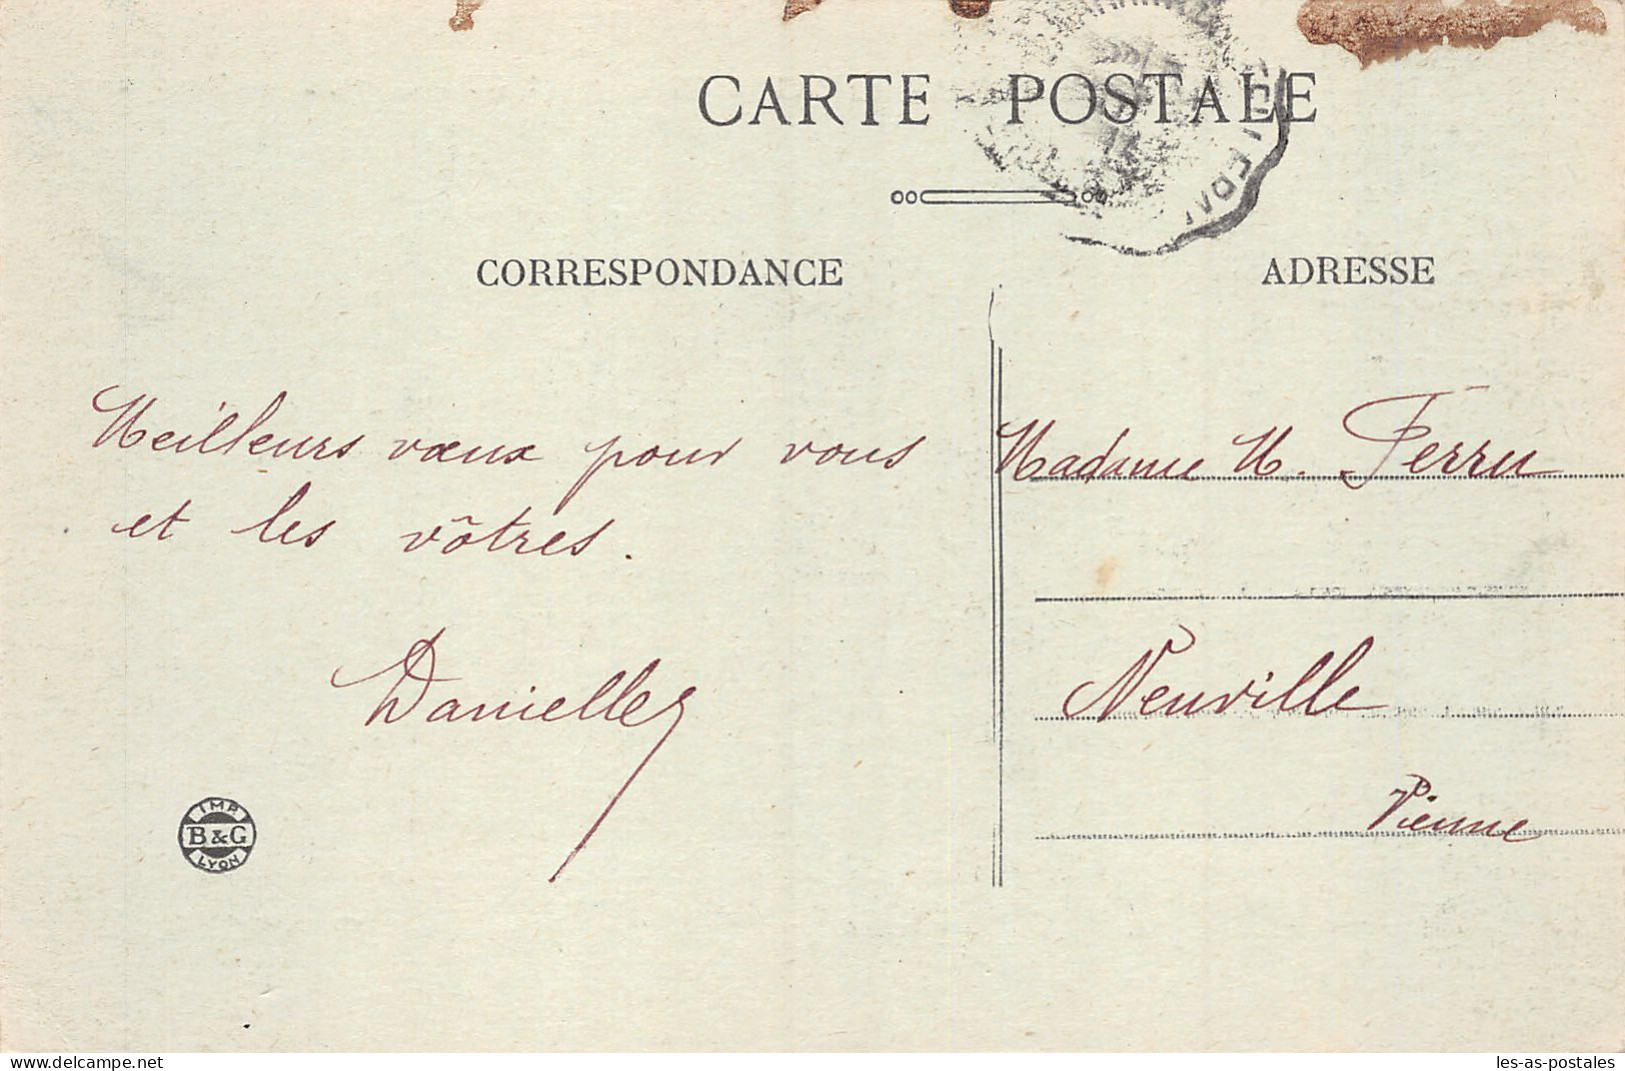 CARTE POSTALE
CORRESPONDANCE
ADRESSE
Meilleurs vœux pour vous
et les vôtres.
Danielle
Madame M. Ferru
Neuville
Vienne
IMP
B&G
LYON
www.delcampe.net
les-as-postales